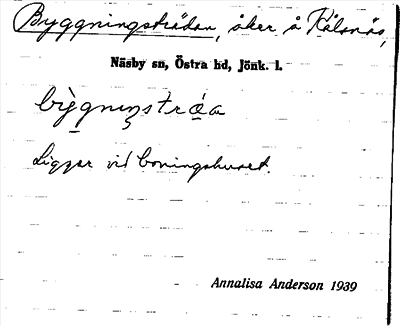 Byggningsträdan, åker å Kålsnäs,
Näsby sn, Östra hd, Jönk. l.
bỳgnıṉʒstrá̱a
Ligger vid boningshuset.
Annalisa Anderson 1939